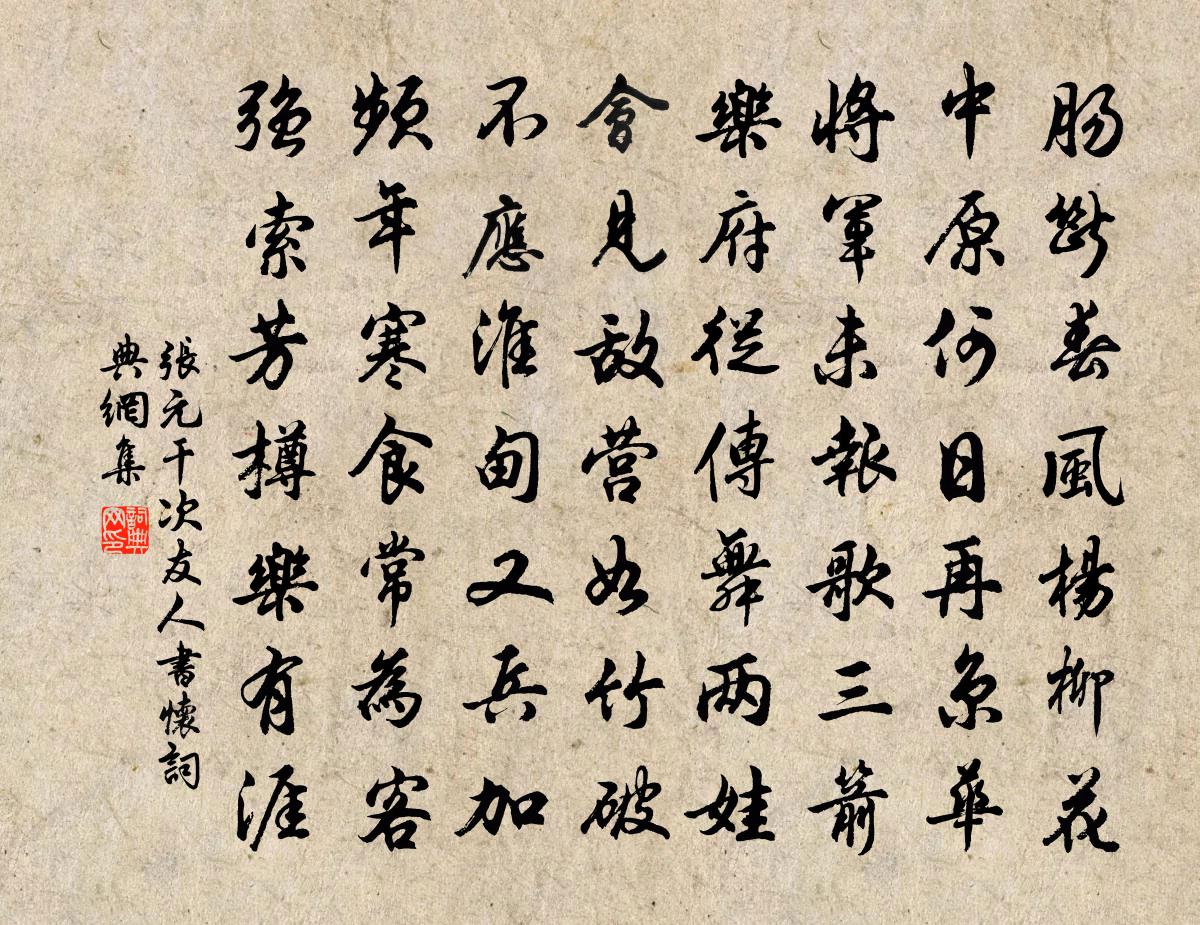 肠斷春風楊柳花
中原何日再京華
將軍未報歌三箭
樂府從傳舞两娃
會見敌营如竹破
不應淮甸又兵加
頻年寒食常為客
強索芳樽樂有涯
張元干次友人書懷詞
典網集
詞典网印